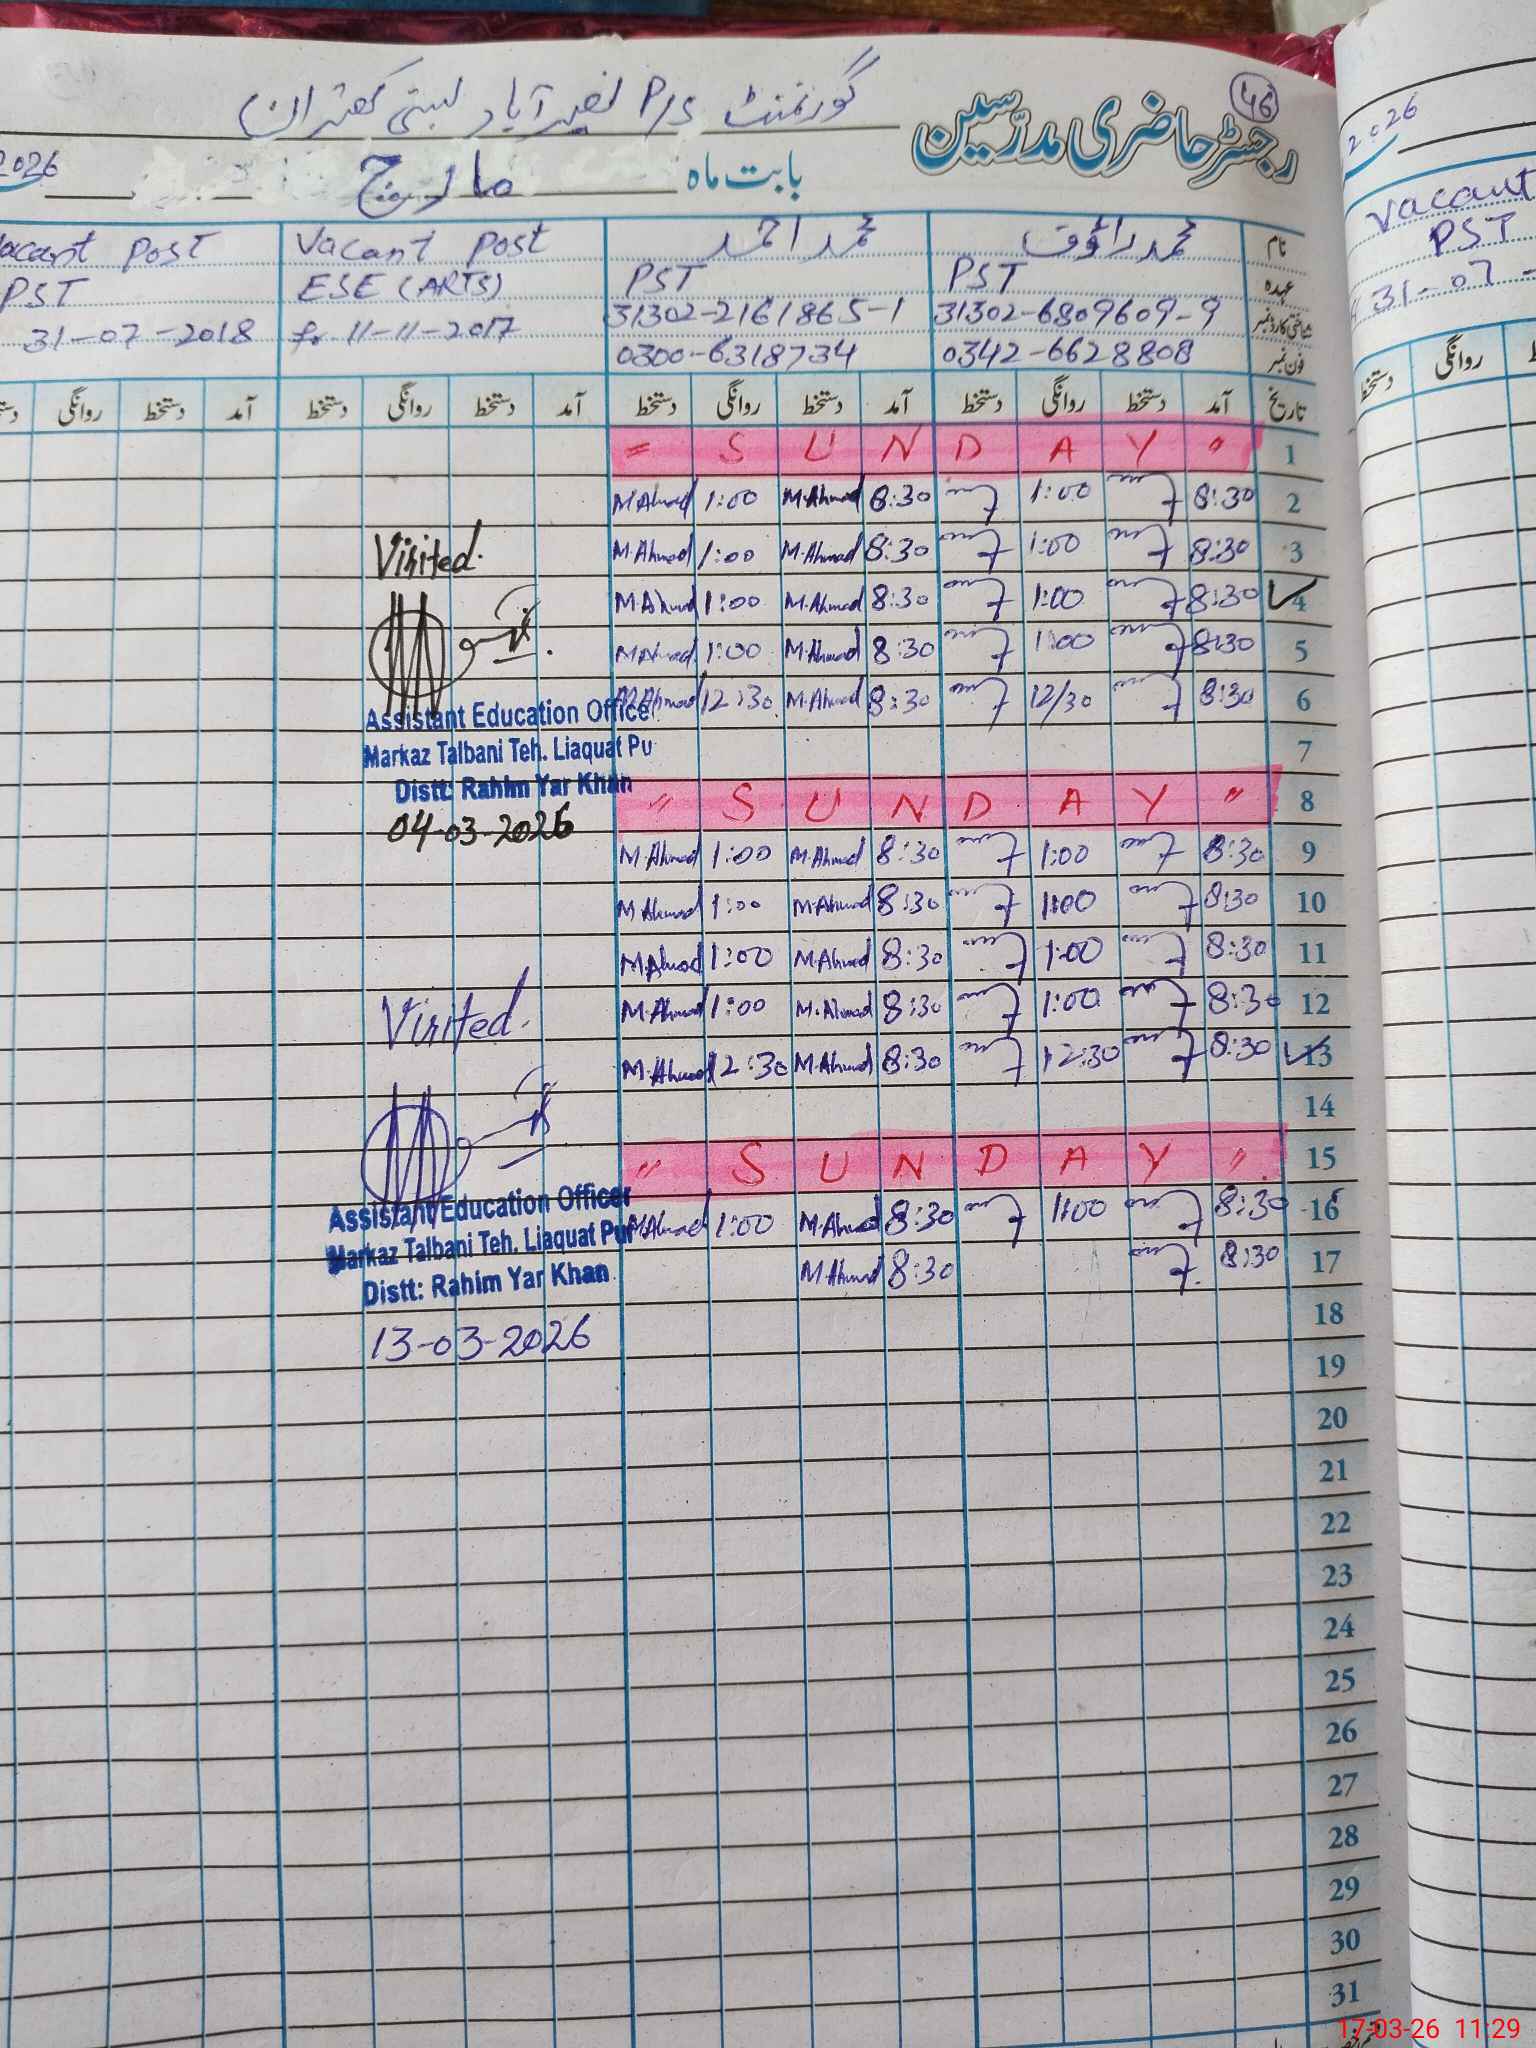 46
رجسٹر حاضری مدرسین
گورنمنٹ P/S نصیر آباد بستی کھتران
بابت ماہ مارچ 2026
نام محمد رؤف محمد احمد Vacant Post Vacant Post
عہدہ PST PST ESE (ARTS) PST
شناختی کارڈ نمبر 31302-6809609-9 31302-2161865-1 fr 11-11-2017 31-07-2018
فون نمبر 0342-6628808 0300-6318734
تاریخ آمد دستخط روانگی دستخط آمد دستخط روانگی دستخط آمد دستخط روانگی دستخط آمد دستخط روانگی
1 " S U N D A Y "
2 8:30 1:00 8:30 M.Ahmad 1:00 M.Ahmad
3 8:30 1:00 8:30 M.Ahmad 1:00 M.Ahmad
4 8:30 1:00 8:30 M.Ahmad 1:00 M.Ahmad
5 8:30 1:00 8:30 M.Ahmad 1:00 M.Ahmad
6 8:30 12/30 8:30 M.Ahmad 12:30 M.Ahmad
7
8 " S U N D A Y "
9 8:30 1:00 8:30 M.Ahmad 1:00 M.Ahmad
10 8:30 1:00 8:30 M.Ahmad 1:00 M.Ahmad
11 8:30 1:00 8:30 M.Ahmad 1:00 M.Ahmad
12 8:30 1:00 8:30 M.Ahmad 1:00 M.Ahmad
13 8:30 12:30 8:30 M.Ahmad 12:30 M.Ahmad
14
15 " S U N D A Y "
16 8:30 1:00 8:30 M.Ahmad 1:00 M.Ahmad
17 8:30 8:30 M.Ahmad
18
19
20
21
22
23
24
25
26
27
28
29
30
31
Visited.
Assistant Education Office
Markaz Talbani Teh. Liaquat Pu
Distt: Rahim Yar Khan
04-03-2026
Visited.
Assistant Education Officer
Markaz Talbani Teh. Liaquat Pur
Distt: Rahim Yar Khan
13-03-2026
2026
Vacant
PST
31-07-
دستخط روانگی
17-03-26 11:29